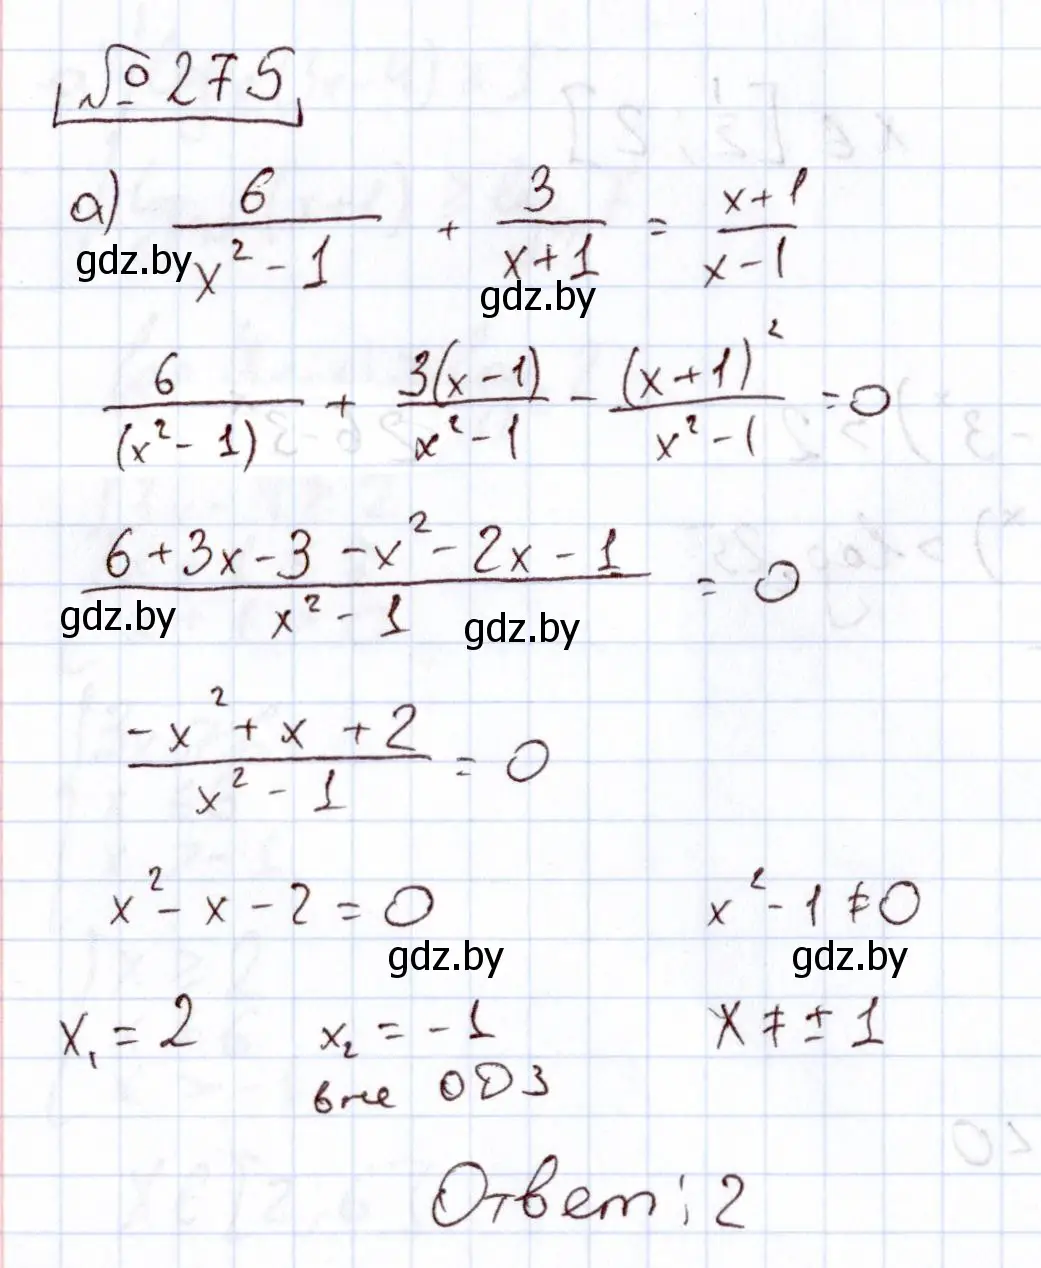 №275
а) 6/(x² - 1) + 3/(x+1) = (x+1)/(x-1)
gdz.by
gdz.by
6/(x² - 1) + 3(x-1)/(x²-1) - (x+1)²/(x²-1) = 0
(6+3x-3-x²-2x-1)/(x²-1) = 0
gdz.by gdz.by
(-x²+x+2)/(x²-1) = 0
x²-x-2=0 x²-1≠0
gdz.by gdz.by
x₁=2 x₂=-1 x≠±1
вне ОДЗ
Ответ: 2